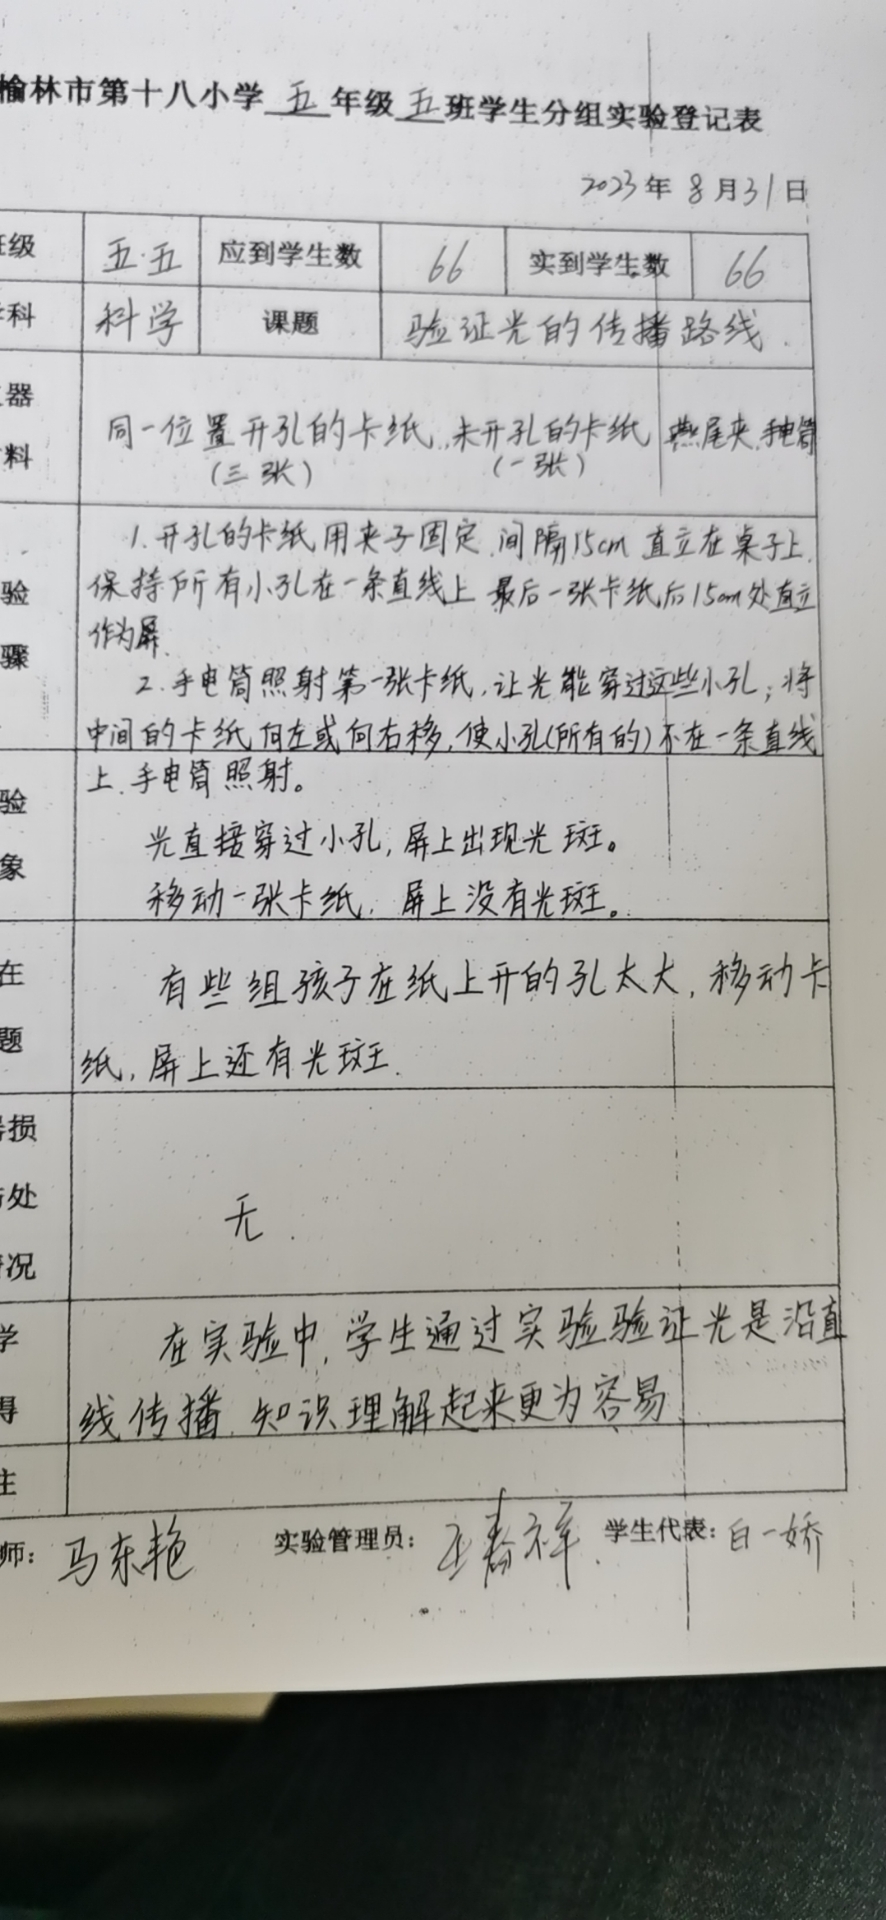 榆林市第十八小学 五 年级 五 班学生分组实验登记表
2023年 8月31日
班级 五.五 应到学生数 66 实到学生数 66
学科 科学 课题 验证光的传播路线.
器 同一位置开孔的卡纸,未开孔的卡纸 燕尾夹,手电筒
料 (三张) (一张)
1.开孔的卡纸用夹子固定,间隔15cm 直立在桌子上,
验 保持所有小孔在一条直线上 最后一张卡纸后15cm处直立
骤 作为屏.
2.手电筒照射第一张卡纸,让光能穿过这些小孔;将
中间的卡纸向左或向右移,使小孔(所有的)不在一条直线
验 上,手电筒照射。
象 光直接穿过小孔,屏上出现光斑。
移动一张卡纸,屏上没有光斑。
在 有些组孩子在纸上开的孔太大,移动卡
题 纸,屏上还有光斑.
损
处 无.
况
学 在实验中,学生通过实验验证光是沿直
得 线传播,知识理解起来更为容易
注
师: 马东艳 实验管理员: 王春祥 学生代表: 白一娇